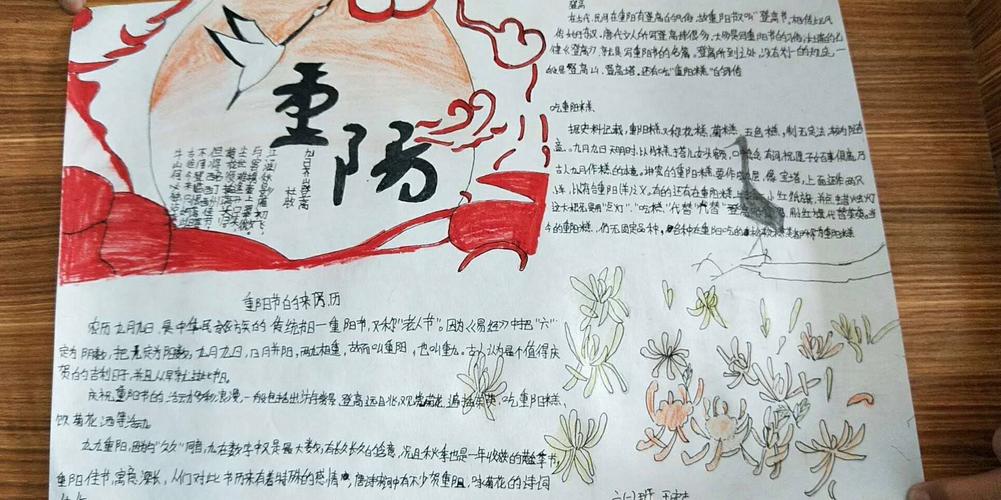 重阳
九日齐山登高
杜牧
江涵秋影雁初飞，
与客携壶上翠微。
尘世难逢开口笑，
菊花须插满头归。
但将酩酊酬佳节，
不用登临恨落晖。
古往今来只如此，
牛山何必
登高
在古代，民间在重阳有登高的风俗，故重阳节又叫"登高节"。相传此风
俗始于东汉。唐代文人所写登高诗很多，大多是写重阳节的习俗；杜甫的七
律《登高》，就是写重阳节的名篇。登高所到之处，没有统一的规定，一
般是登高山、登高塔。还有吃"重阳糕"的习俗
吃重阳糕
据史料记载，重阳糕又称花糕、菊糕、五色糕，制无定法，较为随
意。九月九日天明时，以片糕搭儿女头额，口中念念有词，祝愿子女百事俱高，乃
古人九月作糕的本意。讲究的重阳糕要作成九层，像宝塔，上面还作两只
羊，以符合重阳(羊)之义。有的还在重阳糕上插小红纸旗，并点蜡烛灯
这大概是用"点灯"、"吃糕"代替"登高"的意思，用小红纸旗代替茱萸。当
今的重阳糕，仍无固定品种，各种在重阳吃的
重阳节的来历
农历九月九日，是中华民族的传统节日—重阳节，又称"老人节"。因为《易经》中把"六"
定为阴数，把九定为阳数，九月九日，日月并阳，两九相重，故而叫重阳，也叫重九。古人认为是个值得庆
贺的吉利日子，并且从早就过此节日。
庆祝重阳节的活动多彩浪漫，一般包括出游赏景、登高远眺、观赏菊花、遍插茱萸、吃重阳糕、
饮菊花酒等活动
九九重阳，因为与"久久"同音，九在数字中又是最大数，有长久长久的含意，况且秋季也是一年收获的黄金季节，
重阳佳节，寓意深长，人们对此节历来有着特殊的感情，唐诗宋词中有不少贺重阳，咏菊花的诗词